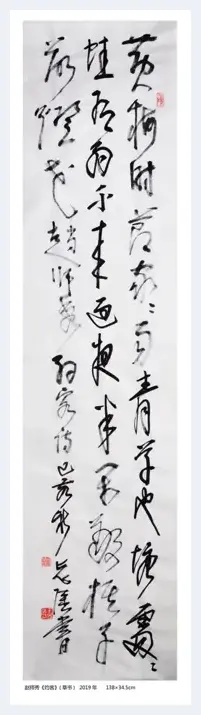 黄梅时节家〻雨青草池塘處〻
蛙有约不来过夜半闲敲棋子
落燈花趙師秀约客诗己亥秋書
赵师秀《约客》( 草书 ) 2019 年 138×34.5cm